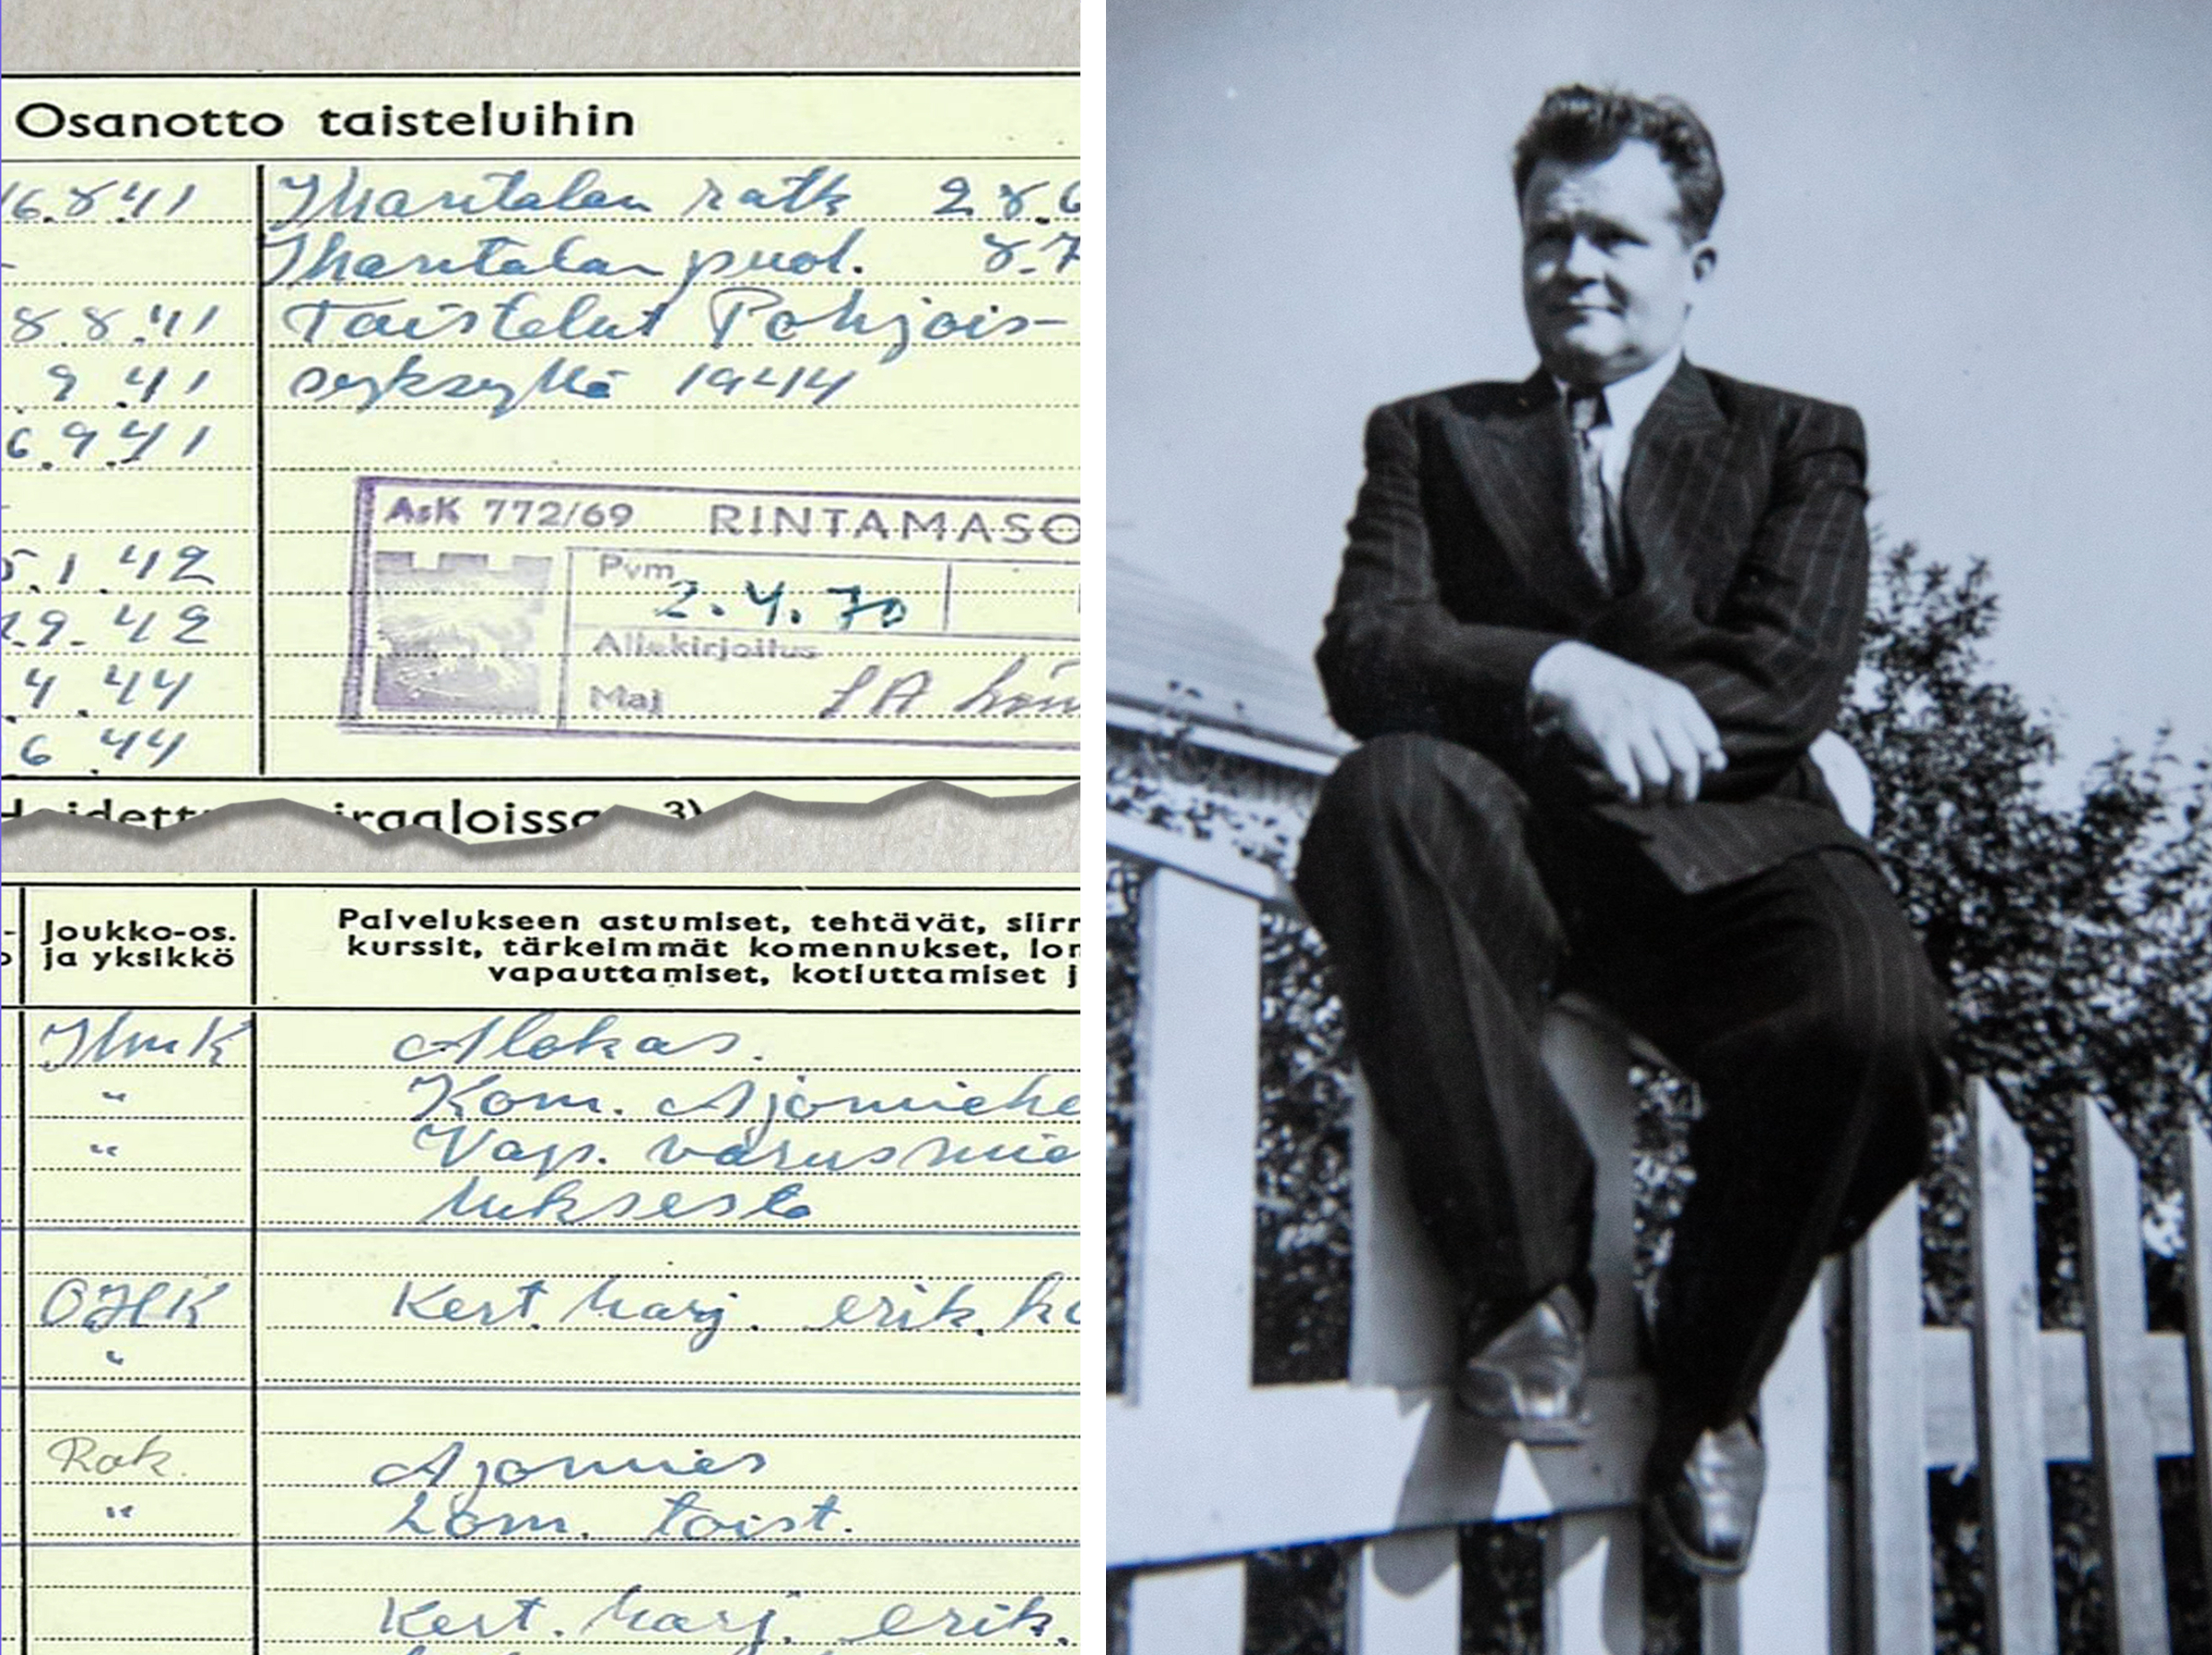 Osanotto taisteluihin
16.8.41 Ihantalan ratk 28.6
Ihantalan puol. 8.7
8.8.41 Taistelut Pohjois-
9.41 syksyllä 1944
6.9.41
AsK 772/69 RINTAMASO
5.1.42 Pvm 2.4.70
29.42 Allekirjoitus
4.44 Maj
6.44
Joukko-os. ja yksikkö
Palvelukseen astumiset, tehtävät, siirr
kurssit, tärkeimmät komennukset, lon
vapauttamiset, kotiuttamiset j
Alokas.
" Kom. Ajomiehe
" Vap. varusmie
luksesta
Kert. harj. erik. ko
"
Rak. Ajomies
" Lom. toist.
Kert. harj. erik.